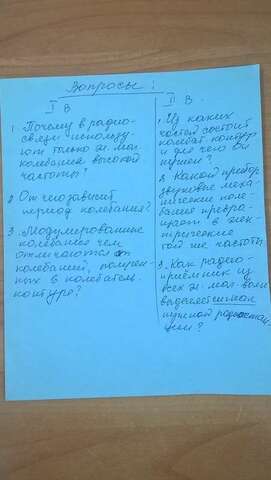 Вопросы:
I В
1. Почему в радио-
связи использу
ют только эл. маг.
колебания высокой
частоты?
2. От чего зависит
период колебания?
3. Модулированные
колебания чем
отличаются от
колебаний, получен-
ных в колебатель.
контуре?
II В.
1. Из каких
частей состоит
колебат. контур
и для чего он
нужен?
2. Какой прибор
звуковые меха-
нические коле-
бания превра-
щает в элек-
трические
той же частоты
3. Как радио-
приёмник из
всех эл. маг. волн
выделяет сигнал
нужной радиостан
ции?